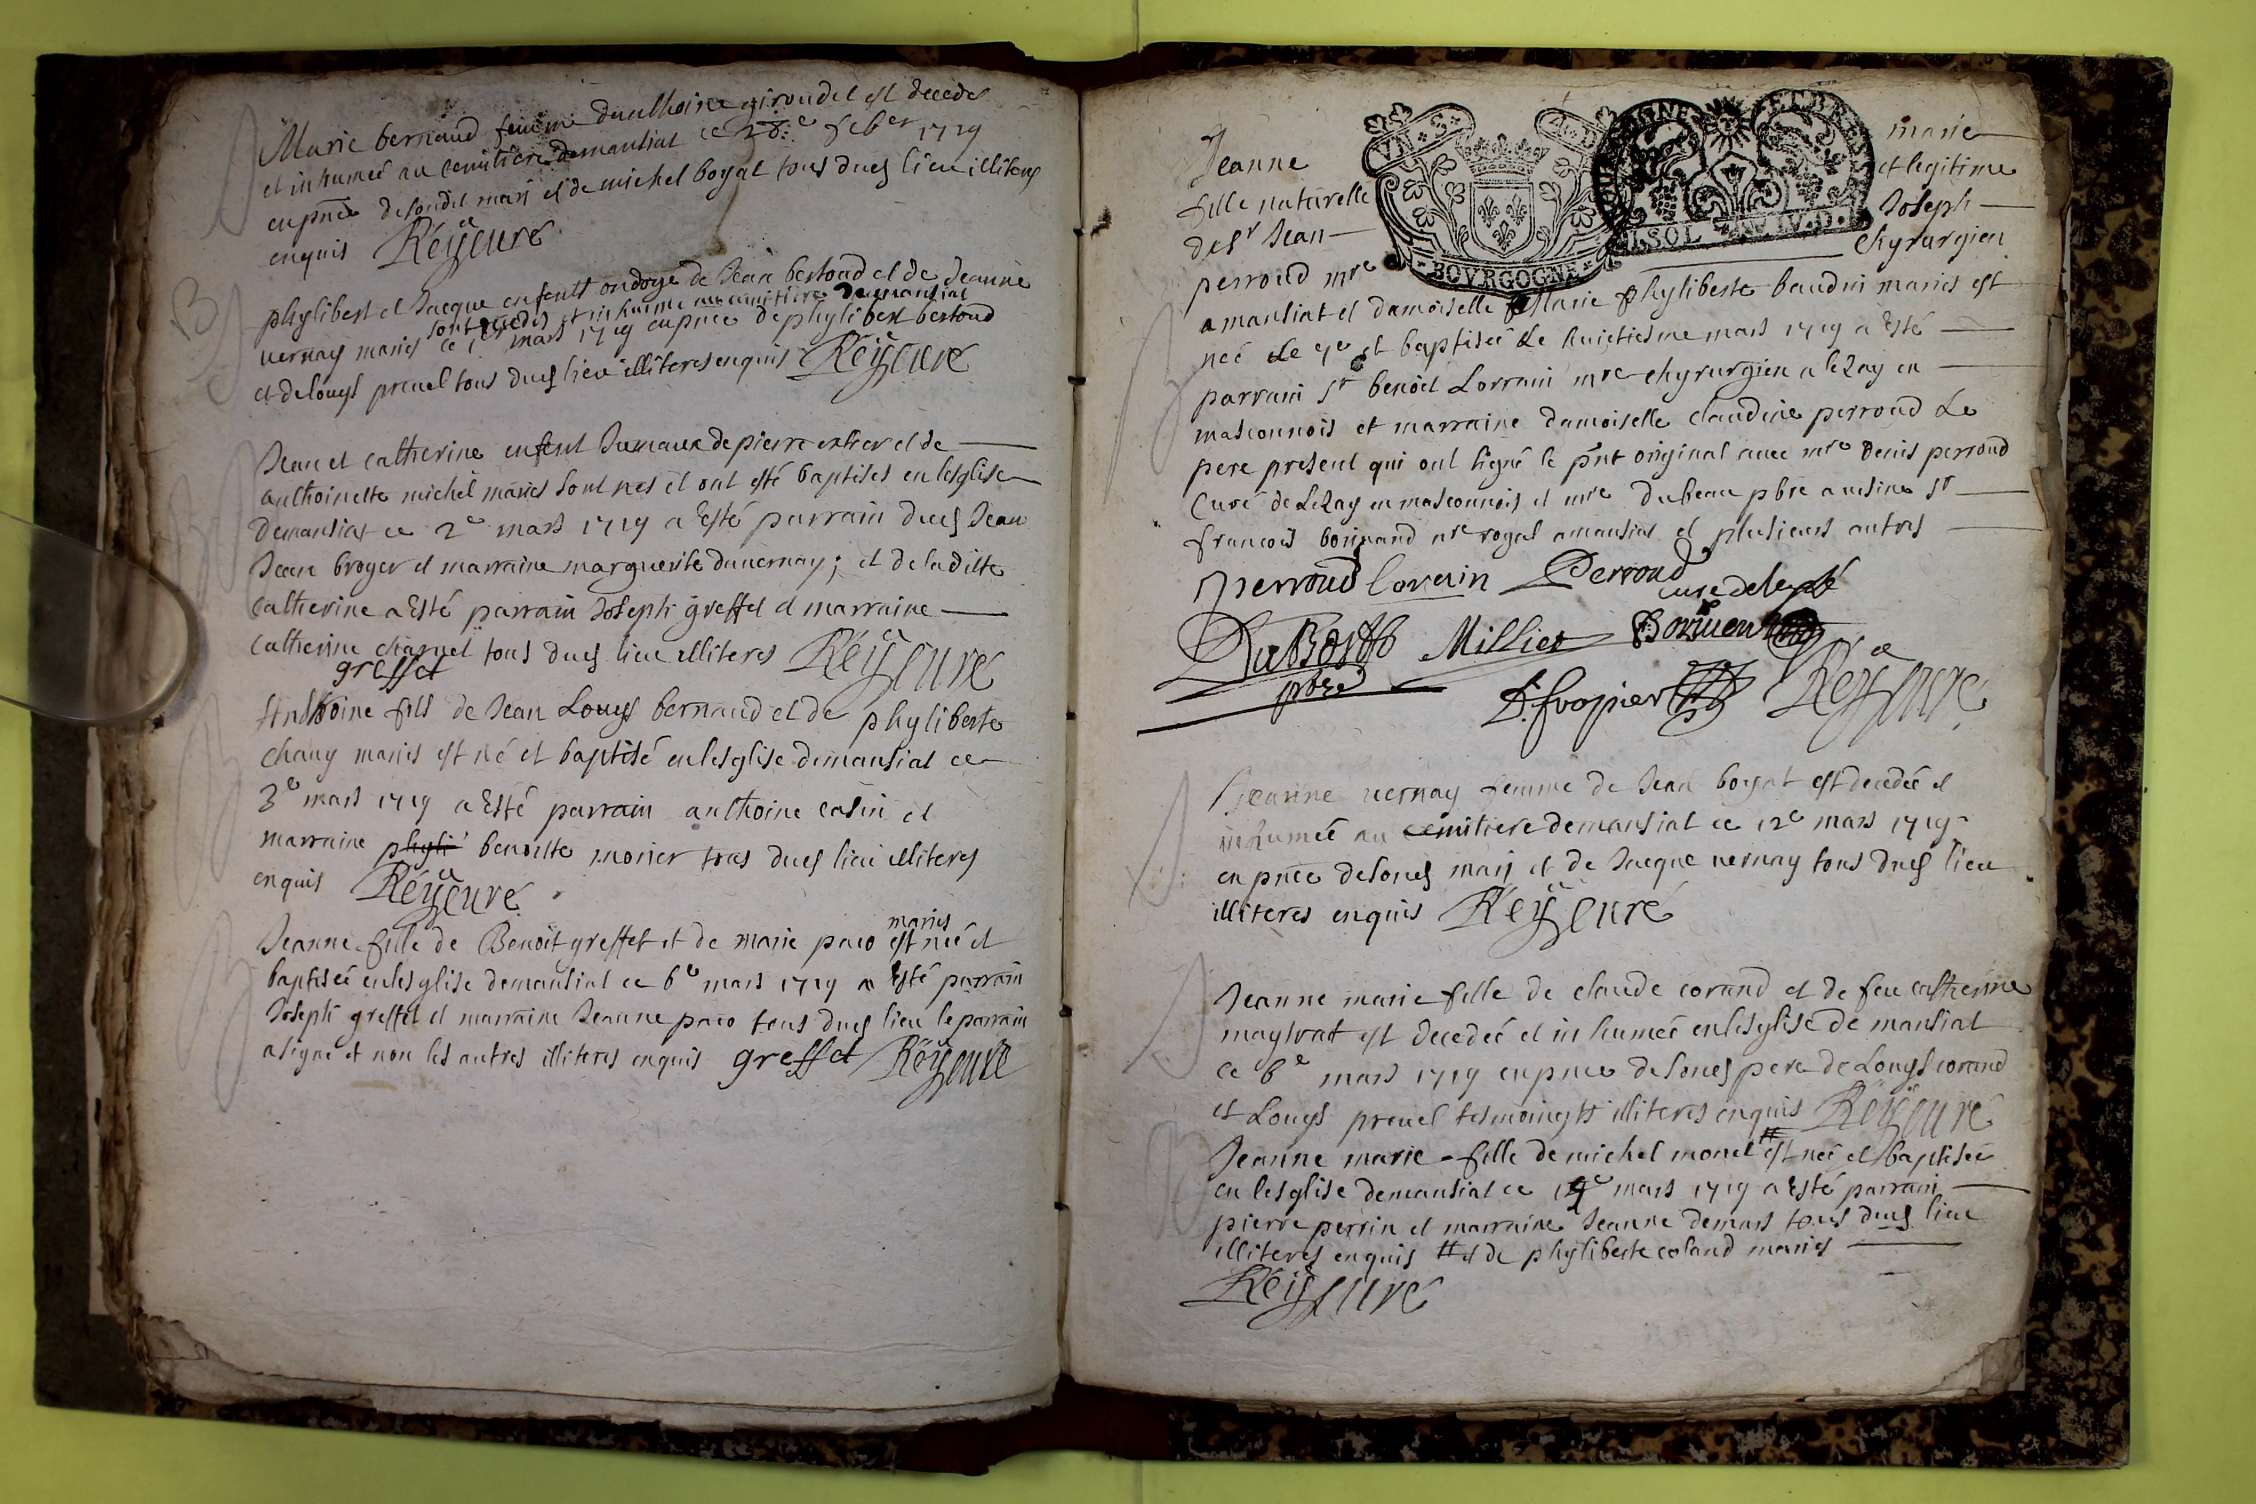 Marie bernaud femme danthoine girondel est decede
et inhumée au cemitiere demansiat ce 28:e feber 1719
en pnce desondit mari et de michel boyat tous dud lieu illiteres
enquis Réÿ curé
phylibert et Jacque enfents ondoyé de Jean bertoud et de Jeanne
sont decedés et inhumé au cemitiere demansiat
vernay mariés ce 1er mars 1719 en pnce de phylibert bertoud
et de louys prevel tous dud lieu illiteres enquis Réÿ curé
Jean et catherine enfent Jumaux de pierre entier et de
anthoinette michel mariés sont nés et ont esté baptises en lesglise
demansiat ce 2e mars 1719 a Esté parrain dud Jean
Jean broyer et marraine marguerite duvernay; et de laditte
catherine a Esté parrain Joseph greffet et marraine
catherine charnel tous dud lieu illiteres Réÿ curé
greffet
Anthoine fils de Jean Louys bernaud et de phyliberte
chany mariés est né et baptisé en lesglise demansiat ce
3e mars 1719 a Esté parrain anthoine casin et
marraine phyli benoitte monier tous dud lieu illiteres
enquis Réÿ curé
mariés
Jeanne fille de Benoit greffet et de marie paco est née et
baptisée en lesglise demansiat ce 6e mars 1719 a Esté parrain
Joseph greffet et marraine Jeanne paco tous dud lieu le parrain
a signé et non les autres illiteres enquis greffet Réÿ curé
BOVRGOGNE
Jeanne marie
fille naturelle et legitime
de sr Jean Joseph
perroud mre chyrurgien
a mansiat et damoiselle Marie phyliberte beaudin mariés est
neé Le 7e et baptisée Le huictiesme mars 1719 a Esté
parrain sr benoit Lorrain mre chyrurgien a leZay en
masconnois et marraine damoiselle claudine perroud Le
pere present qui ont signé le pnt original avec mre denis perroud
Curé de LeZay en masconnois et mre dubeau pbre a visine sr
francois bonnand nre royal a mansiat et plusieurs autres
perroud lorain Perroud
curé de lezé
DuBost Millier
pbre
Réÿ curé
Jeanne vernay femme de Jean boyat est decedée et
inhumée au cemitiere demansiat ce 12e mars 1719
en pnce desond mari et de Jacque vernay tous dud lieu
illiteres enquis Réÿ curé
Jeanne marie fille de claude corand et de feu catherine
mayivat est decedée et inhumée en lesglise de mansiat
ce 6e mars 1719 en pnce desond pere de Louys corand
et Louys prevel tesmoings illiteres enquis Réÿ curé
Jeanne marie fille de michel monet # est neé et baptisée
en lesglise demansiat ce mars 1719 a Esté parrain
pierre perrin et marraine Jeanne demars tous dud lieu
illiteres enquis # et de phyliberte coland mariés
Réÿ curé